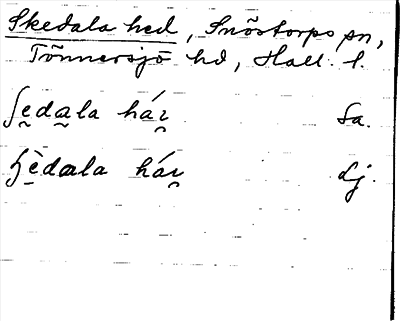 Skedala hed, Snöstorps sn,
Tönnersjö hd, Hall. l.
ʃe̯da̯la háɿ̯ Sa.
ɧèdala háɿ̯ Lj.